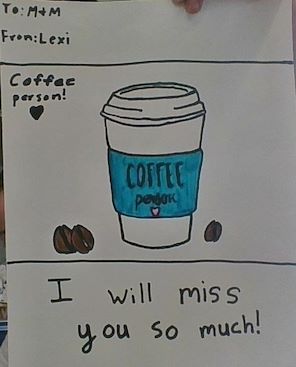 To: M+M
From: Lexi
Coffee
person!
COFFEE
person
I will miss
you so much!